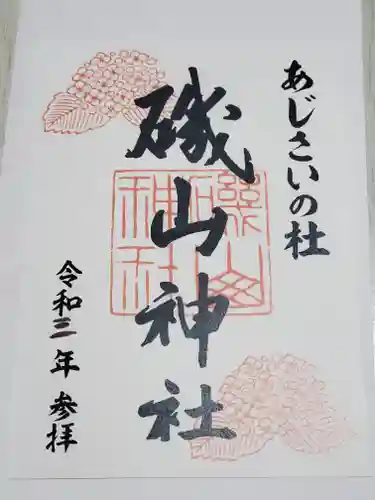 あじさいの杜
磯山神社
磯山
神社
令和三年 参拝